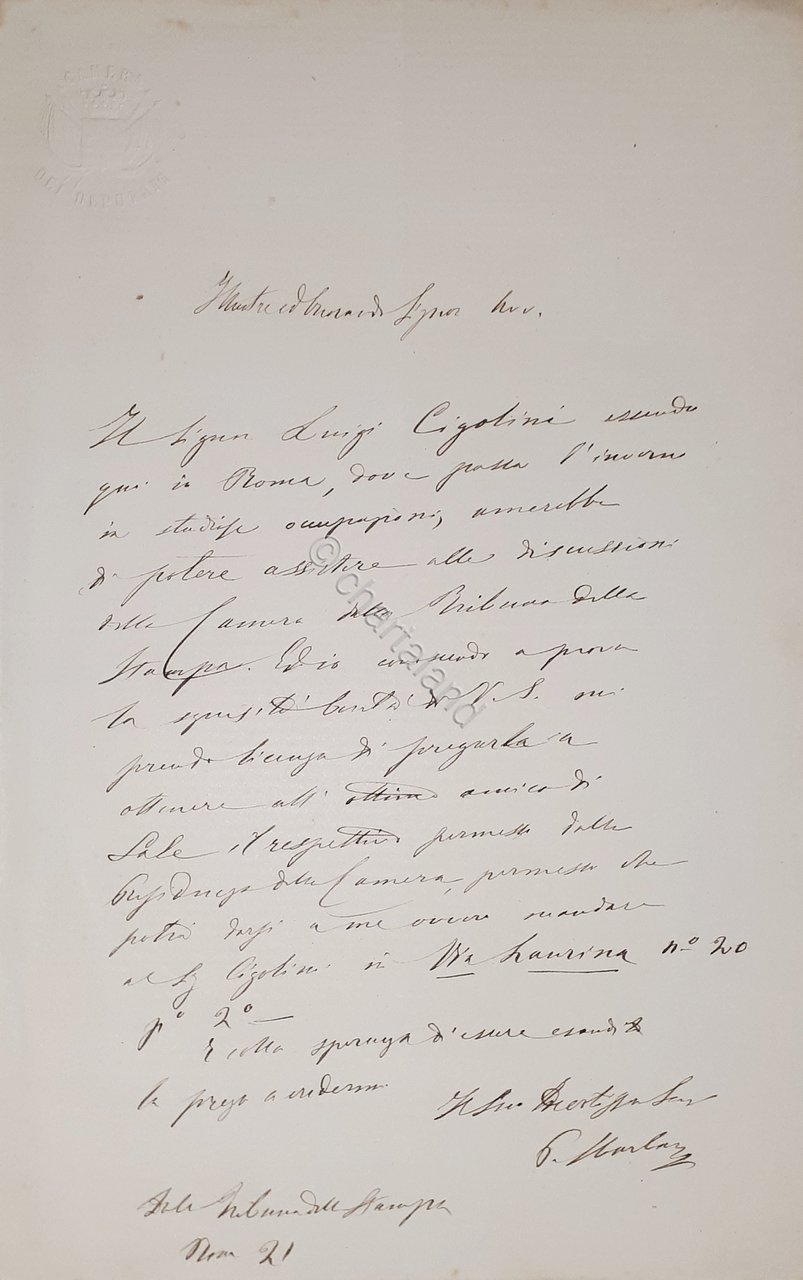 CAMERA
DEI DEPUTATI
Illustre ed onorando Signor Avv.
Il Signor Luigi Cigolini essendo
qui in Roma, dove passa l'inverno
in studiose occupazioni, amerebbe
di potere assistere alle discussioni
della Camera dalla Tribuna della
Stampa. Ed io conoscendo a prova
la squisita bontà di V. S. mi
prendo licenza di pregarla a
ottenere all' ottimo amico di
Sale il respettivo permesso dalla
Presidenza della Camera, permesso che
potrà darsi a me ovvero mandare
al Sig Cigolini in Via Laurina nº 20
pº 2º
E colla speranza d'essere esaudito
la prego a credermi
Il Suo Devotissimo
P.
Tribuna della Stampa
21
© chartaland